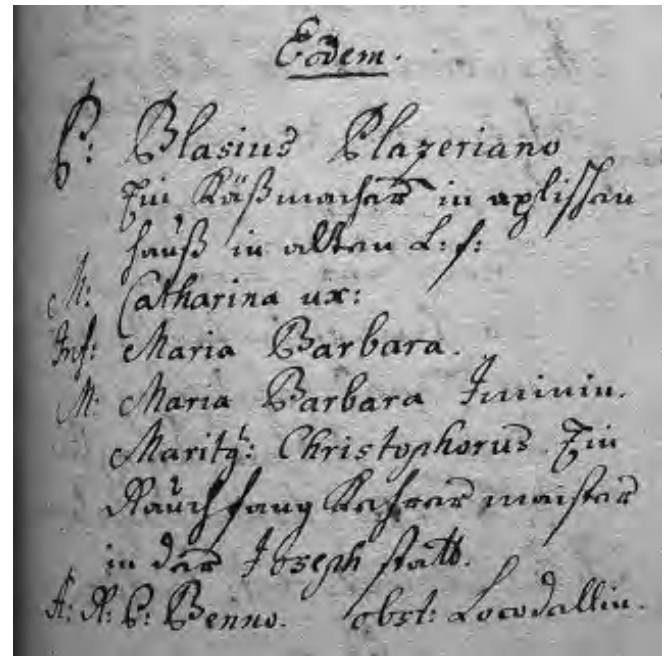 Eodem.
P: Blasius Plazeriano
Ein Käßmacher in
hauß in alten L: f:
M: Catharina ux:
Inf: Maria Barbara.
M: Maria Barbara
Maritq: Christophorus Ein
Rauchfang Kehrer maister
in der Joseph statt.
A: R: P: Benno. obst: Locodallin.